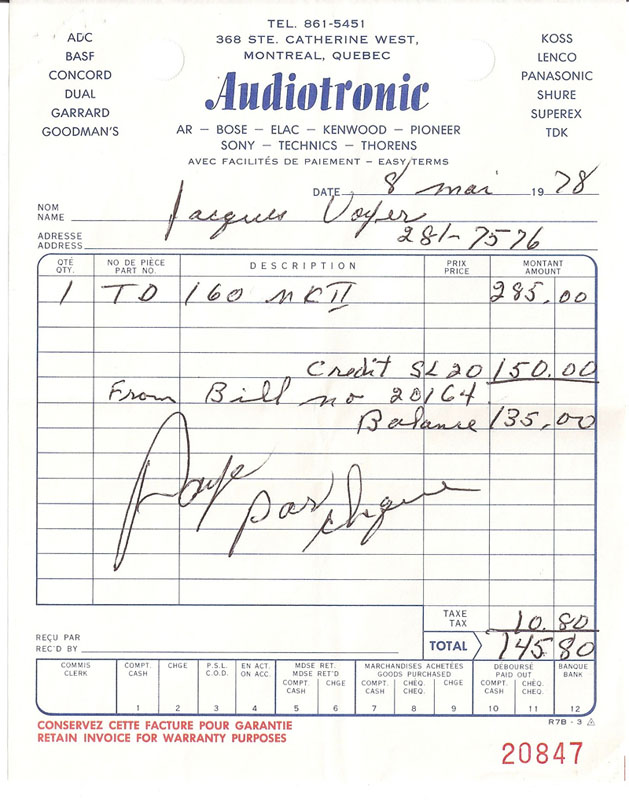 TEL. 861-5451
368 STE. CATHERINE WEST,
MONTREAL, QUEBEC
ADC
BASF
CONCORD
DUAL
GARRARD
GOODMAN'S
Audiotronic
KOSS
LENCO
PANASONIC
SHURE
SUPEREX
TDK
AR – BOSE – ELAC – KENWOOD – PIONEER
SONY – TECHNICS – THORENS
AVEC FACILITÉS DE PAIEMENT – EASY TERMS
DATE 8 mai 1978
NOM
NAME Jacques Voyer
ADRESSE
ADDRESS 281-7576
QTÉ QTY. NO DE PIÈCE PART NO. DESCRIPTION PRIX PRICE MONTANT AMOUNT
1 TD 160 MKII 285.00
Credit SL 20 150.00
From Bill no 20164
Balance 135.00
Paye par chèque
TAXE
TAX 10.80
REÇU PAR
REC'D BY
TOTAL 145.80
COMMIS CLERK COMPT. CASH 1 CHGE 2 P.S.L. C.O.D. 3 EN ACT. ON ACC. 4 MDSE RET. MDSE RET'D COMPT. CASH 5 CHGE 6 MARCHANDISES ACHETÉES GOODS PURCHASED COMPT. CASH 7 CHÈQ. CHEQ. 8 CHGE 9 DÉBOURSÉ PAID OUT COMPT. CASH 10 CHÈQ. CHEQ. 11 BANQUE BANK 12
CONSERVEZ CETTE FACTURE POUR GARANTIE
RETAIN INVOICE FOR WARRANTY PURPOSES
R7B - 3
20847